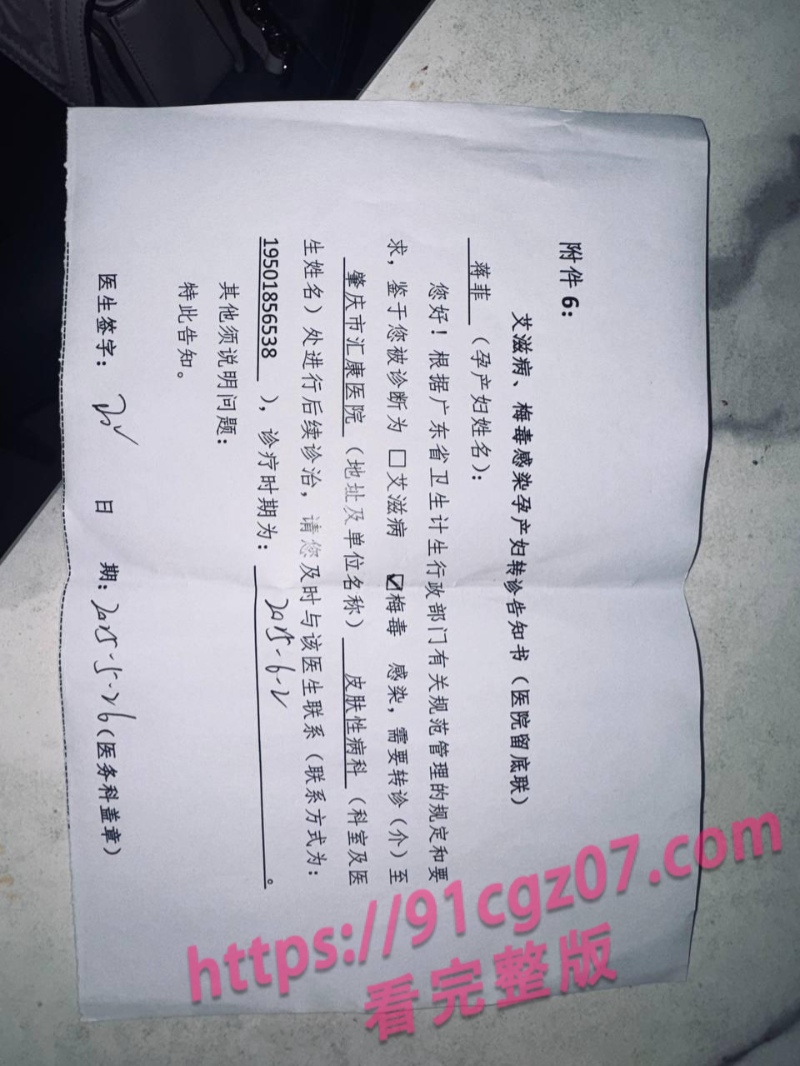 附件 6:
艾滋病、梅毒感染孕产妇转诊告知书（医院留底联）
蒋菲（孕产妇姓名）:
您好！根据广东省卫生计生行政部门有关规范管理的规定和要
求，鉴于您被诊断为 □艾滋病 ☑梅毒 感染，需要转诊（介）至
肇庆市汇康医院（地址及单位名称）皮肤性病科（科室及医
生姓名）处进行后续诊治，请您及时与该医生联系（联系方式为：
19501856538），诊疗时期为：2025-6-2。
其他须说明问题：
特此告知。
医生签字： 日 期：2025-5-26（医务科盖章）
https://91cgz07.com
看完整版